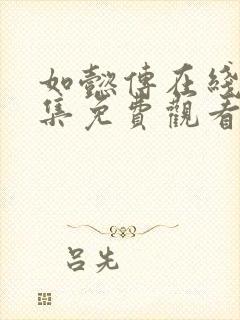 如懿傳在綫
集免費觀看
呂先